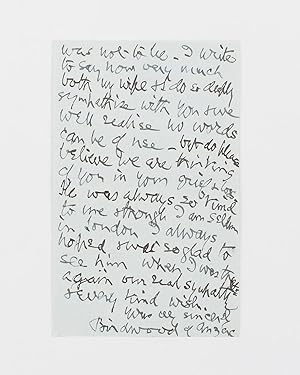 was not to be - I write
to say how very much
both my wife & I do so deeply
sympathise with you & we
well realise no words
can be of use - but do please
believe we are thinking
of you in your grief & loss
He was always so kind
to me though I am seldom
in London I always
hoped & was so glad to
see him when I was there
again our real sympathy
& every kind wish.
Yours sincere
Birdwood of Anzac